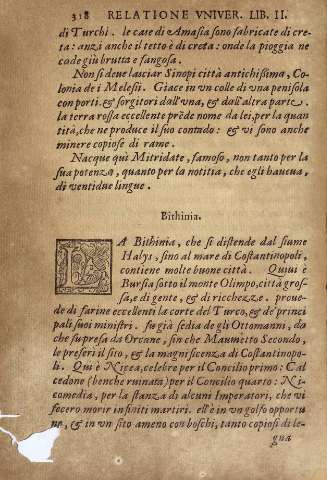 318 RELATIONE VNIVER. LIB. II.
di Turchi. le case di Amasia sono fabricate di cre-
ta: anzi anche il tetto è di creta: onde la pioggia ne
cade giù brutta e fangosa.
Non si deue lasciar Sinopi città antichissima, Co-
lonia de i Melesii. Giace in vn colle di vna penisola
con porti & sorgitori dall'vna, & dall'altra parte.
la terra rossa eccellente prēde nome da lei, per la quan
tità, che ne produce il suo contado: & vi sono anche
minere copiose di rame.
Nacque quì Mitridate, famoso, non tanto per la
sua potenza, quanto per la notitia, che egli haueua,
di ventidue lingue.
Bithinia.
LA Bithinia, che si distende dal fiume
Halys, sino al mare di Costantinopoli,
contiene molte buone città. Quiui è
Bursia sotto il monte Olimpo, città gros-
sa, e di gente, & di ricchezze. proue-
de di farine eccellenti la corte del Turco, & de' princi
pali suoi ministri. fu già sedia de gli Ottomanni, da
che fu presa da Orcane, sin che Maumetto Secondo,
le preferì il sito, & la magnificenza di Costantinopo-
li. Quì è Nicea, celebre per il Concilio primo: Cal
cedone (benche ruinata) per il Concilio quarto: Ni-
comedia, per la stanza di alcuni Imperatori, che vi
fecero morir infiniti martiri. ell'è in vn golfo opportu
no, & in vn sito ameno con boschi, tanto copiosi di le-
gna